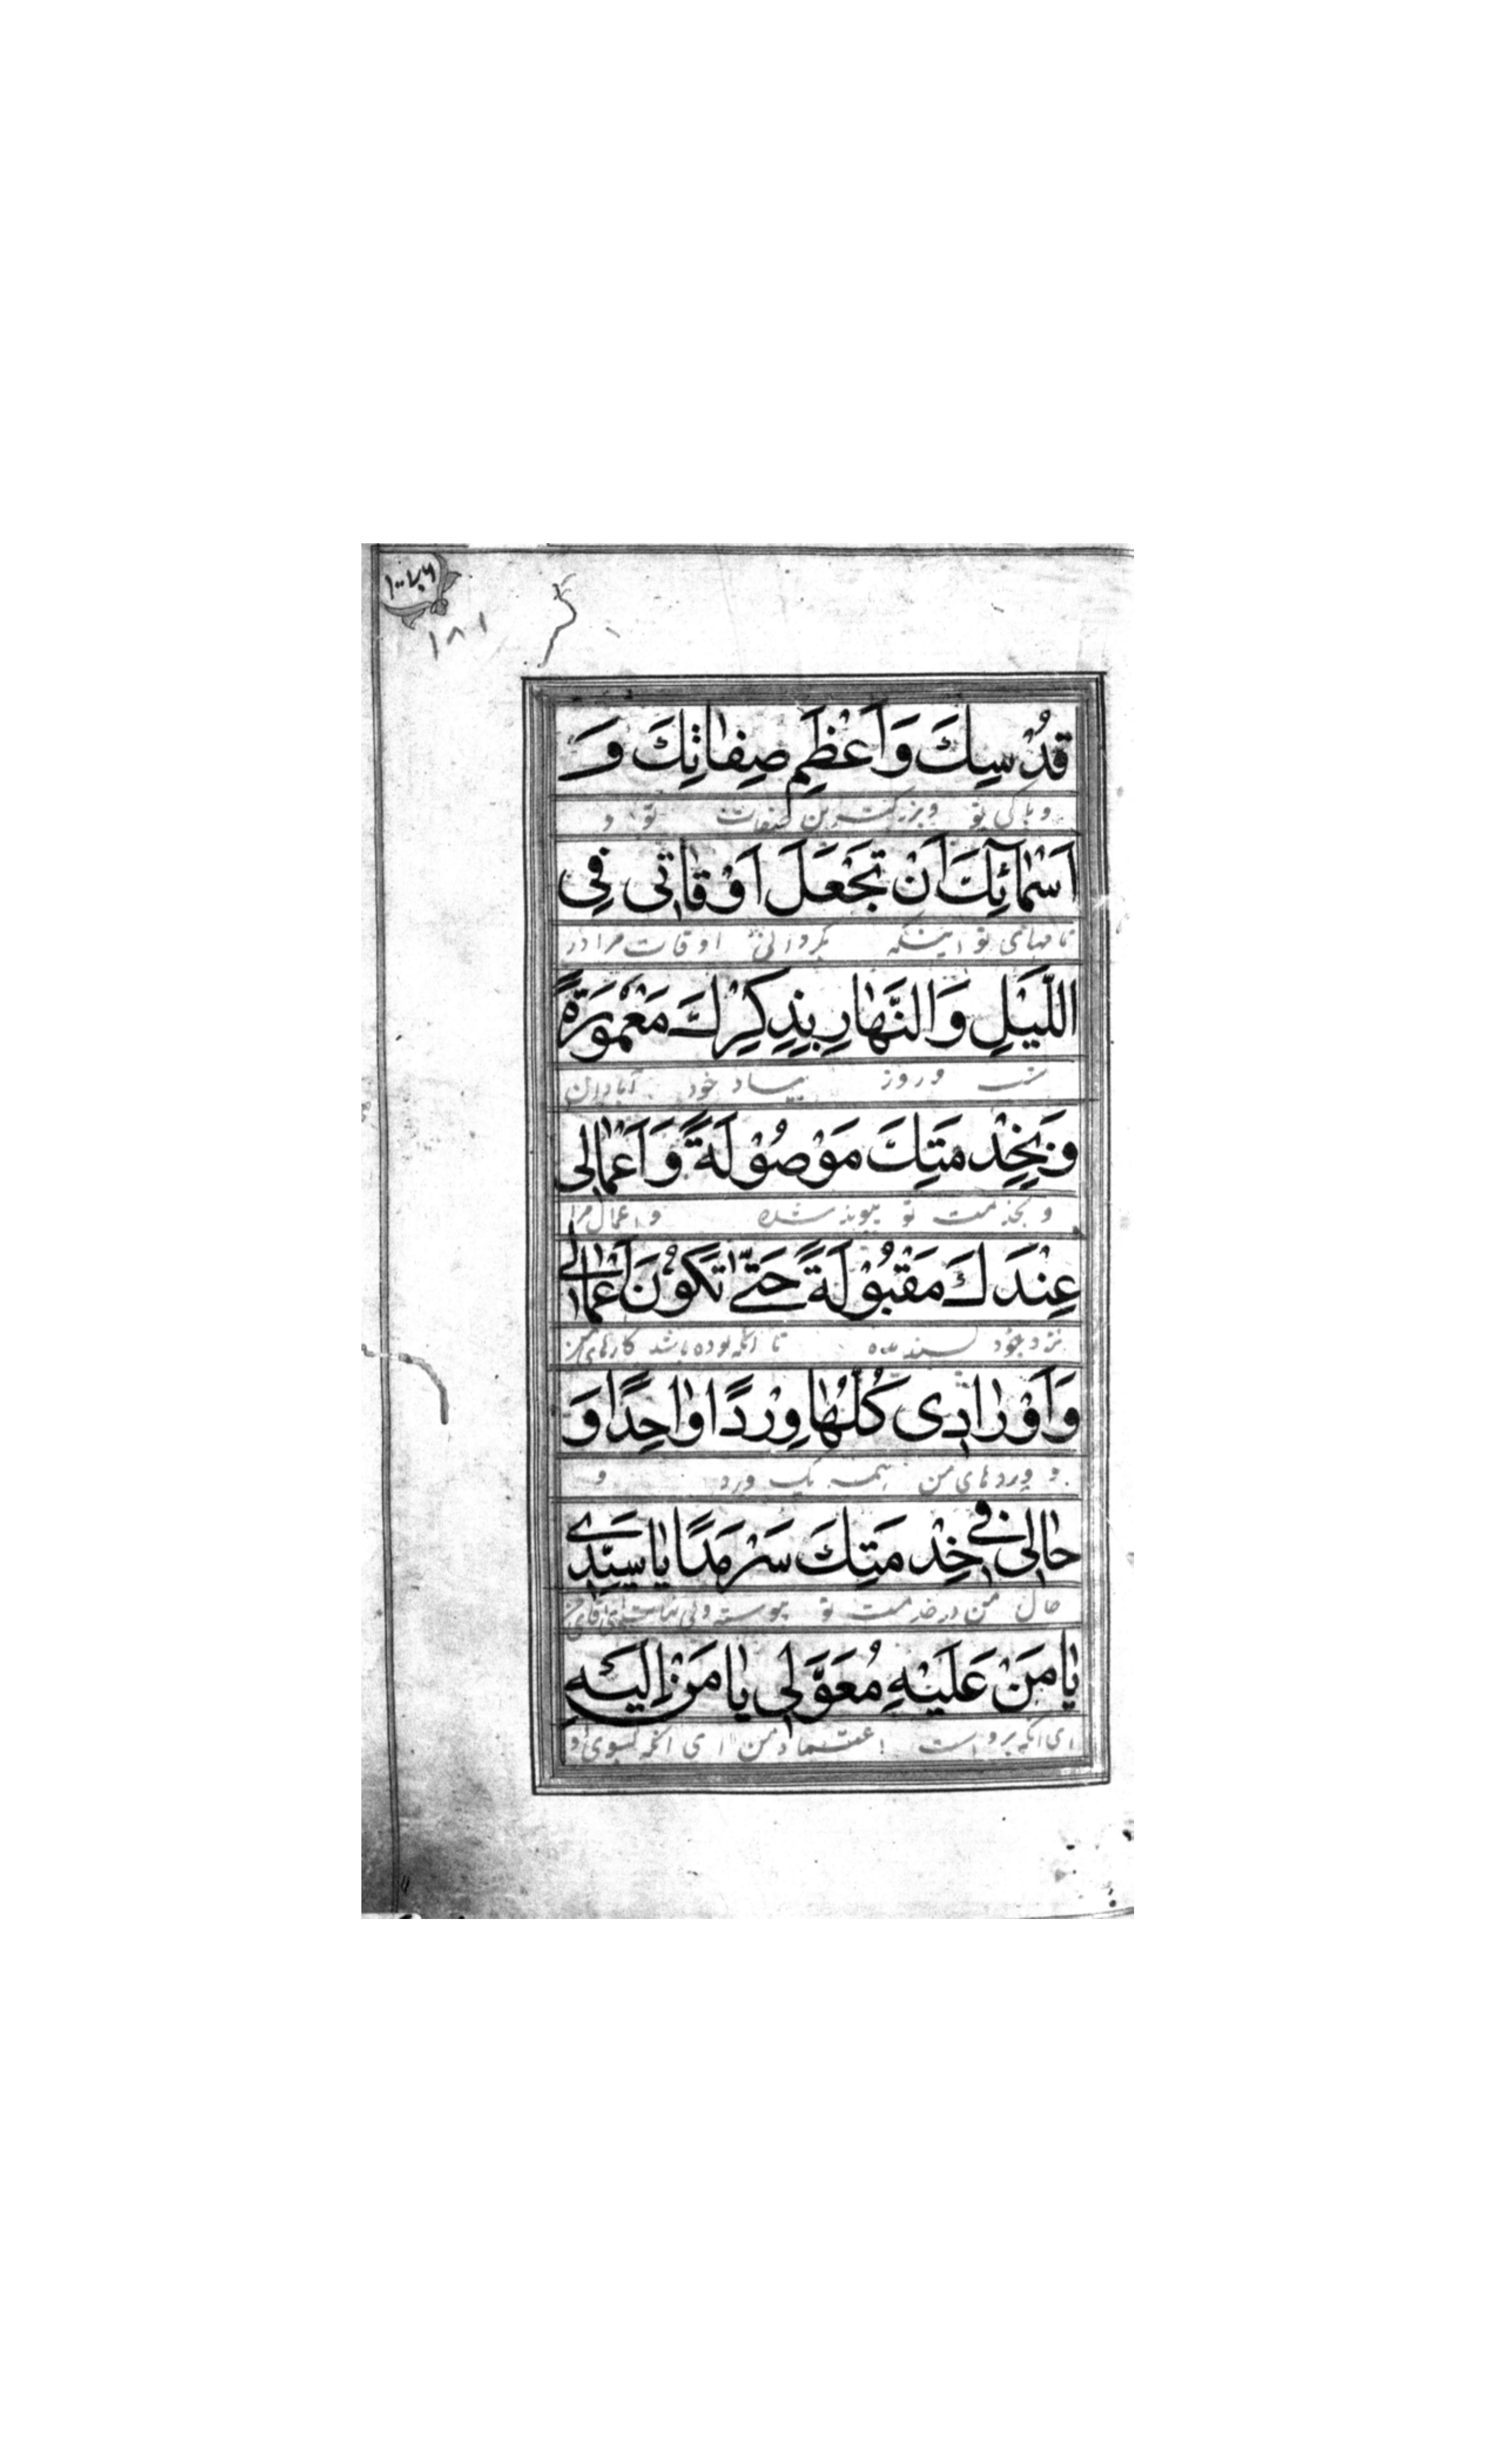 ۱۰۰۷۸۹
۱۸۱
قُدْسِكَ وَاَعْظَمِ صِفٰاتِكَ وَ
و پاکی تو و بزرگترین صفات تو و
اَسْمٰآئِكَ اَنْ تَجْعَلَ اَوْقٰاتی فِی
نامهای تو اینکه بگردانی اوقات مرا در
اللَّیْلِ وَالنَّهٰارِ بِذِكْرِكَ مَعْمُورَةً
شب و روز بیاد خود آبادان
وَبِخِدْمَتِكَ مَوْصُوْلَةً وَاَعْمٰالی
و بخدمت تو پیوند شده و اعمال مرا
عِنْدَكَ مَقْبُوْلَةً حَتّٰی تَكُوْنَ اَعْمٰالی
نزد خود پسندیده تا آنکه بوده باشد کارهای من
وَاَوْرٰادی كُلُّهٰا وِرْدًا وٰاحِدًا وَ
و وردهای من همه یک ورد و
حٰالی فی خِدْمَتِكَ سَرْمَدًا یٰا سَیِّدی
حال من در خدمت تو پیوسته و بی نهایت ای آقای من
یٰا مَنْ عَلَیْهِ مُعَوَّلی یٰا مَنْ اِلَیْهِ
ای آنکه بر او است اعتماد من ای آنکه بسوی او